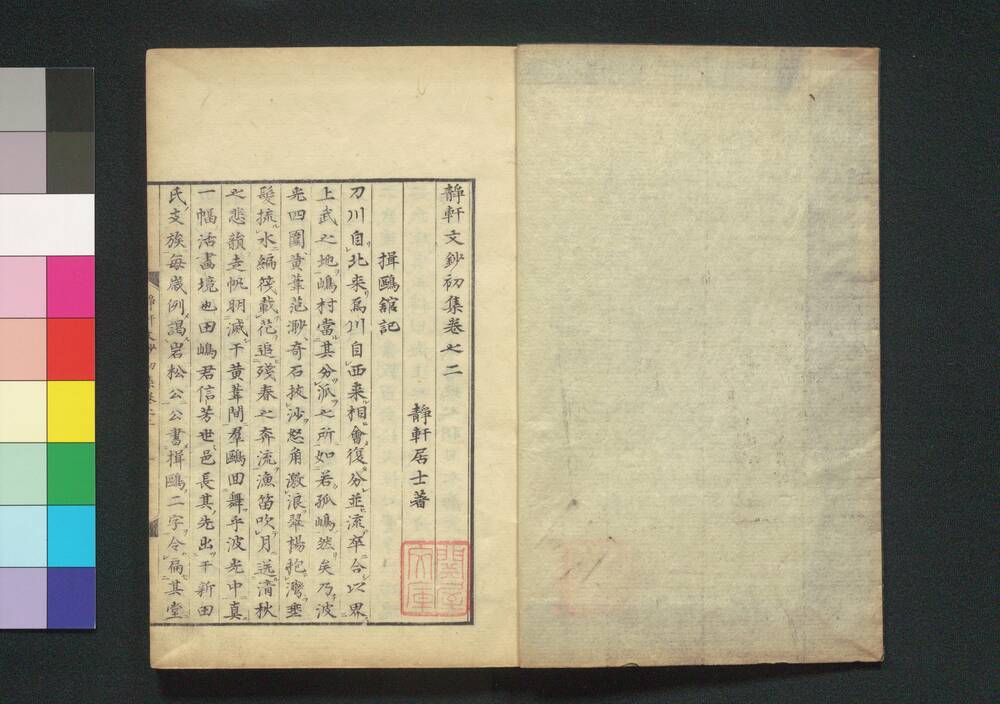 靜軒文鈔初集卷之二
靜軒居士著
揖鷗館記
刀川自北来爲川自西来相會復分並流卒合以界
上武之地嶋村當其分派之所如若孤嶋然矣乃波
光四圍黄葦茫渺奇石挾沙怒角激浪翠楊抱灣垂
髮梳水編筏載花追殘春之奔流漁笛吹月送清秋
之悲籟走帆明滅于黄葦間羣鷗回舞乎波光中真
一幅活畵境也田嶋君信芳世邑長其先出于新田
氏支族毎歳例謁岩松公公書揖鷗二字令扁其堂